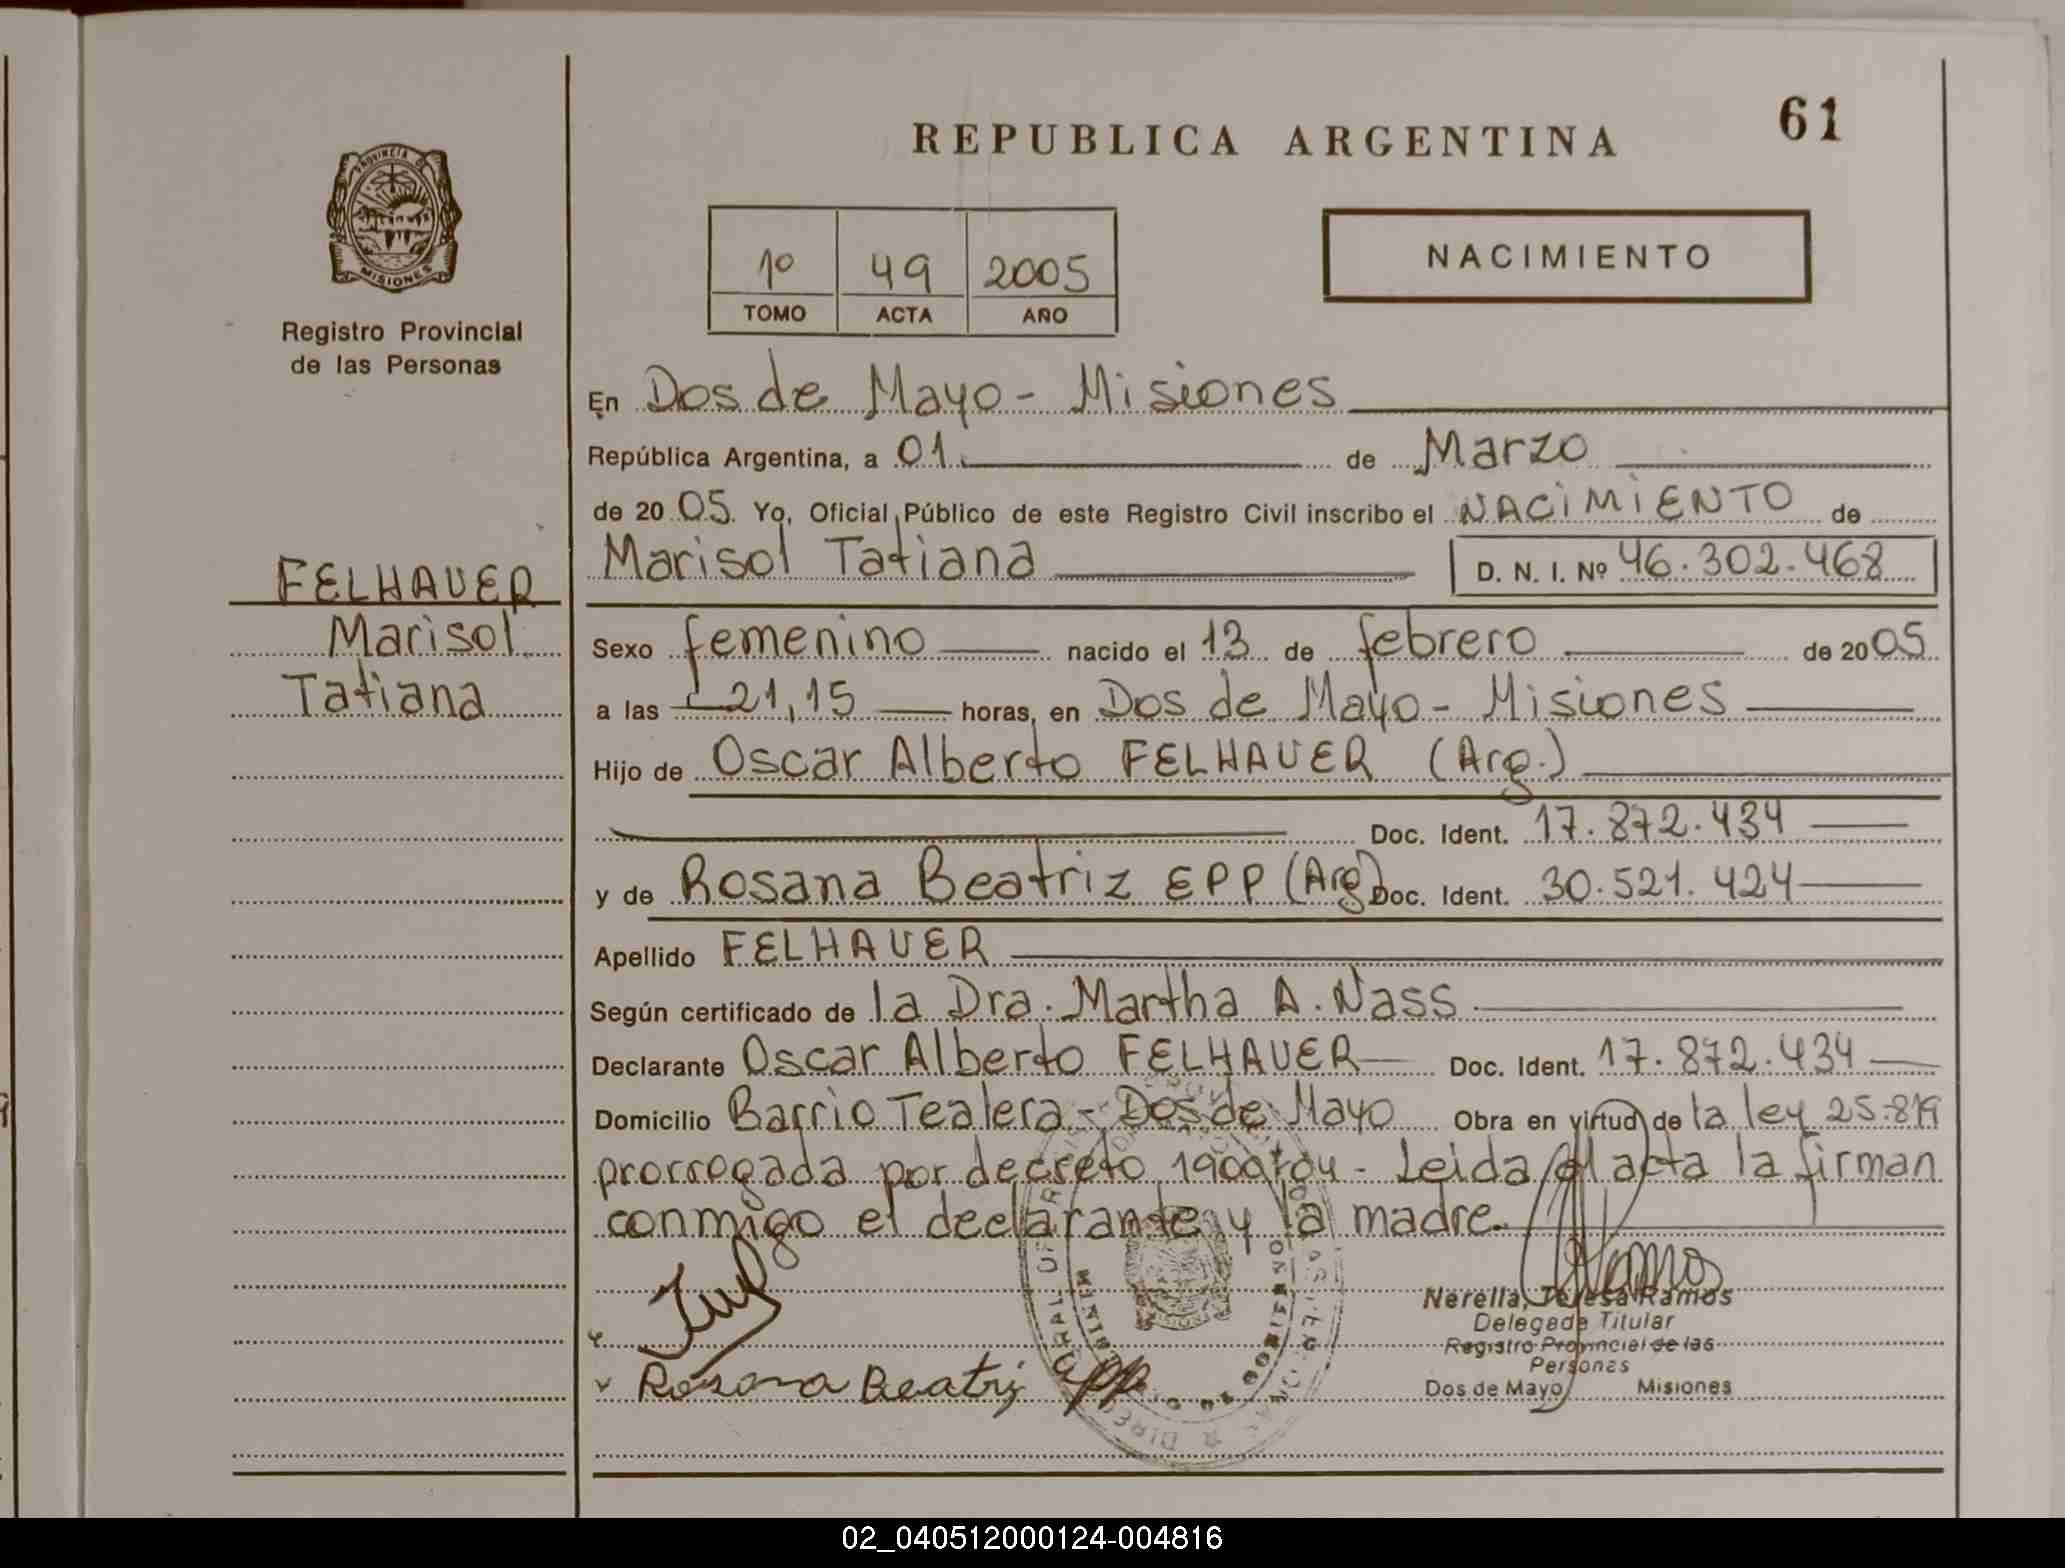 61
REPUBLICA ARGENTINA
PROVINCIA DE
MISIONES
Registro Provincial
de las Personas
NACIMIENTO
1º 49 2005
TOMO ACTA AÑO
En Dos de Mayo - Misiones
República Argentina, a 01 de Marzo
de 2005. Yo, Oficial Público de este Registro Civil inscribo el NACIMIENTO de
Marisol Tatiana D. N. I. Nº 46.302.468
FELHAUER
Marisol
Tatiana
Sexo femenino nacido el 13 de febrero de 2005
a las 21,15 horas, en Dos de Mayo - Misiones
Hijo de Oscar Alberto FELHAUER (Arg.)
Doc. Ident. 17.872.434
y de Rosana Beatriz EPP (Arg) Doc. Ident. 30.521.424
Apellido FELHAUER
Según certificado de la Dra. Martha A. Nass
Declarante Oscar Alberto FELHAUER Doc. Ident. 17.872.434
Domicilio Barrio Tealera - Dos de Mayo Obra en virtud de la ley 25.819
prorrogada por decreto - Leida el acta la firman
conmigo el declarante y la madre.
Rosana Beatriz epp
Nerella, Teresa Ramos
Delegada Titular
Registro Provincial de las
Personas
Dos de Mayo Misiones
02_040512000124-004816